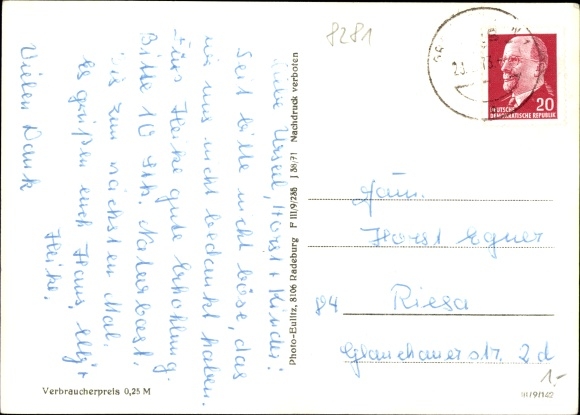 8281
Liebe Ursel, Horst + Kinder!
Seit bitte nicht böse, das
wir uns nicht bedankt haben.
Fürs Heike gute Erholung.
Bitte 10 Stk. Naturbast.
bis zum nächsten Mal.
Es grüßen euch Hans, Elly +
Heike.
Vielen Dank
Photo-Eulitz, 8106 Radeburg F III/9/288 J 38/71 Nachdruck verboten
20
DEUTSCHE
DEMOKRATISCHE REPUBLIK
Fam.
Horst Egner
84 Riesa
Glauchauer str. 2 d
1.-
Verbraucherpreis 0,25 M
III/9/142